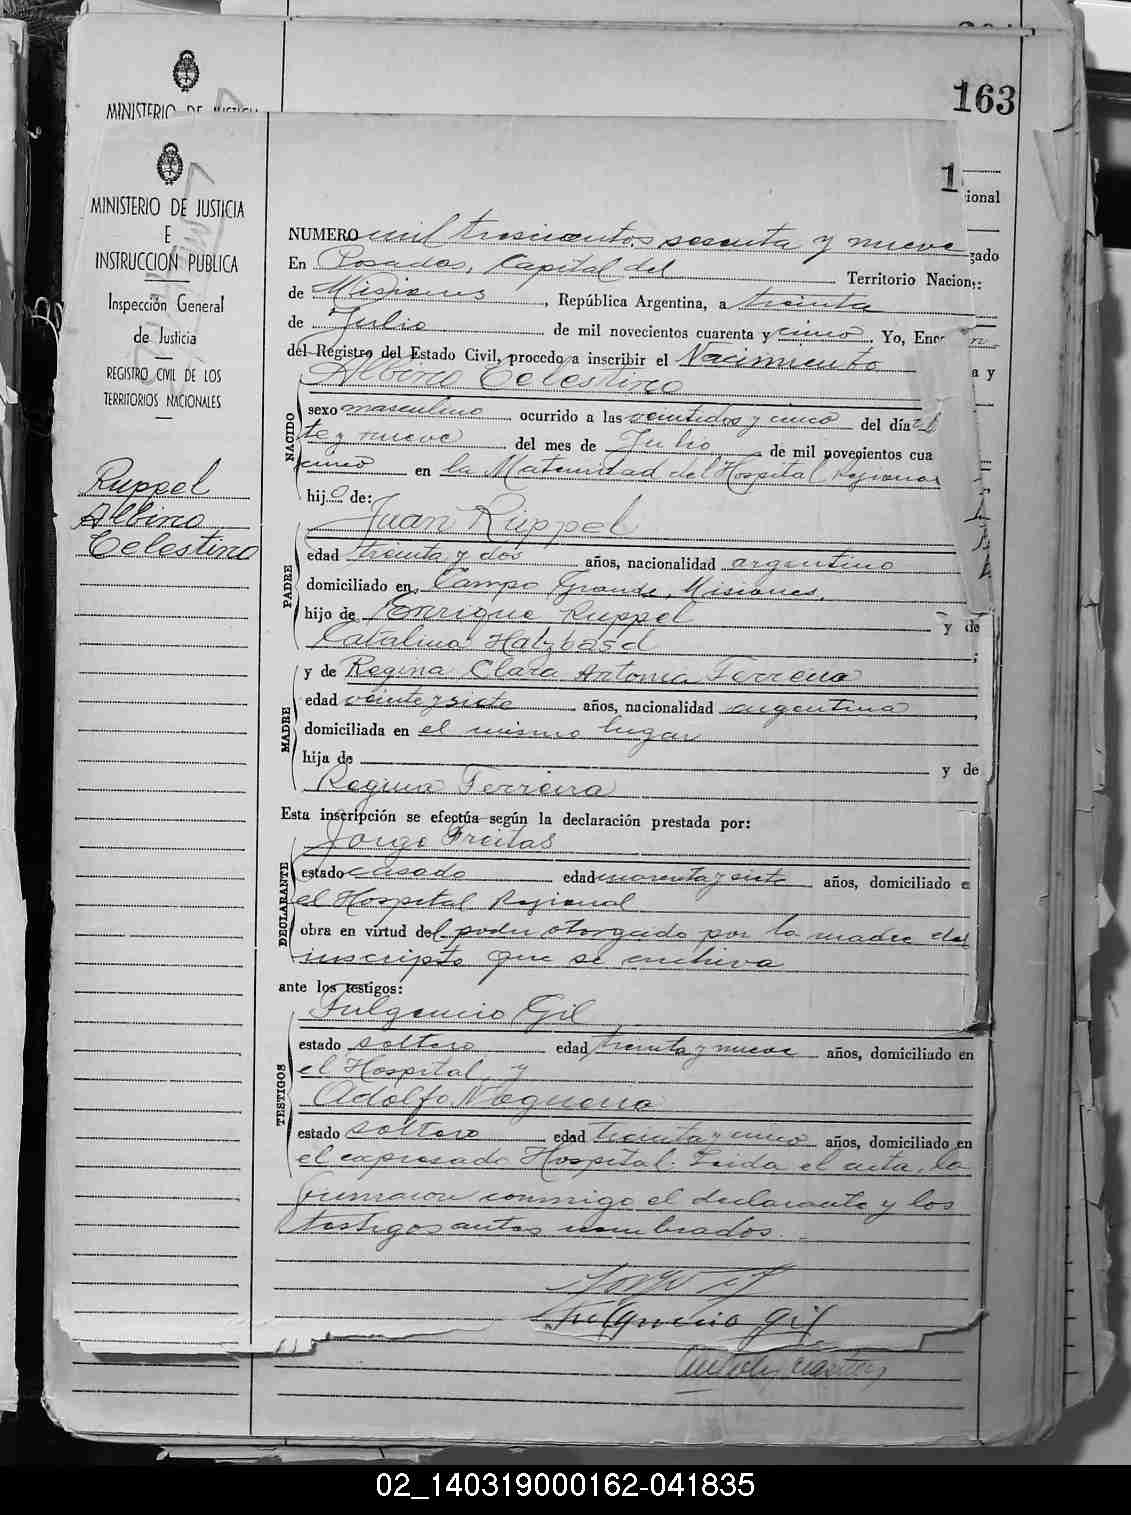 163
MINISTERIO DE JUSTICIA
1
ional
MINISTERIO DE JUSTICIA
E
INSTRUCCION PUBLICA
Inspección General
de Justicia
REGISTRO CIVIL DE LOS
TERRITORIOS NACIONALES
Ruppel
Albino
Celestino
NUMERO mil trescientos sesenta y nueve
gado
En Posadas, Capital del Territorio Nacion
de Misiones, República Argentina, a treinta
de Julio de mil novecientos cuarenta y cinco. Yo, Enc
del Registro del Estado Civil, procedo a inscribir el Nacimiento
a y
Albino Celestino
NACIDO
sexo masculino ocurrido a las veintidos y cinco del día
te y nueve del mes de Julio de mil novecientos cua
cinco en la Maternidad del Hospital Regional
hijo de:
Juan Rüppel
PADRE
edad treinta y dos años, nacionalidad argentino
domiciliado en Campo Grande, Misiones,
hijo de Enrique Ruppel y de
Catalina Hatzbasd;
y de Regina Clara Antonia Ferreira
MADRE
edad veinte y siete años, nacionalidad argentina,
domiciliada en el mismo lugar
hija de y de
Regina Ferreira
Esta inscripción se efectúa según la declaración prestada por:
Jorge Freitas
DECLARANTE
estado casado edad cuarenta y siete años, domiciliado e
el Hospital Regional
obra en virtud del poder otorgado por la madre del
inscripto que se archiva
ante los testigos:
Fulgencio Gil
TESTIGOS
estado soltero edad treinta y nueve años, domiciliado en
el Hospital y
Adolfo Noguera
estado soltero edad treinta y cinco años, domiciliado en
el expresado Hospital. Leida el acta, la
firmaron conmigo el declarante y los
testigos antes nombrados.
Fulgencio Gil
02_140319000162-041835